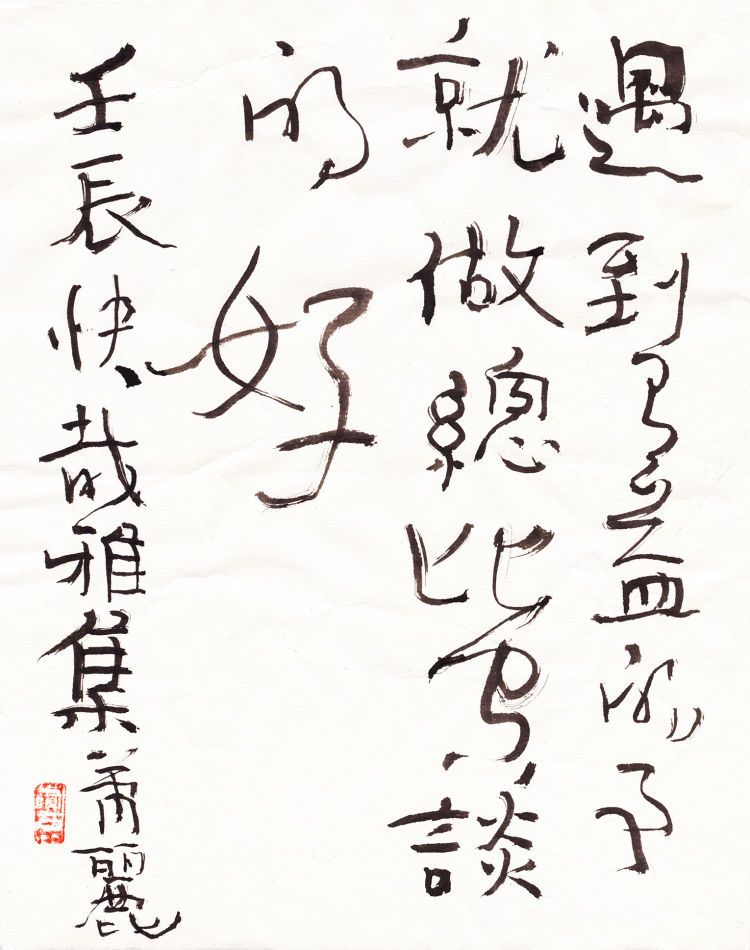 遇到有益的事
就做總比空談
的好
壬辰快哉雅集麗